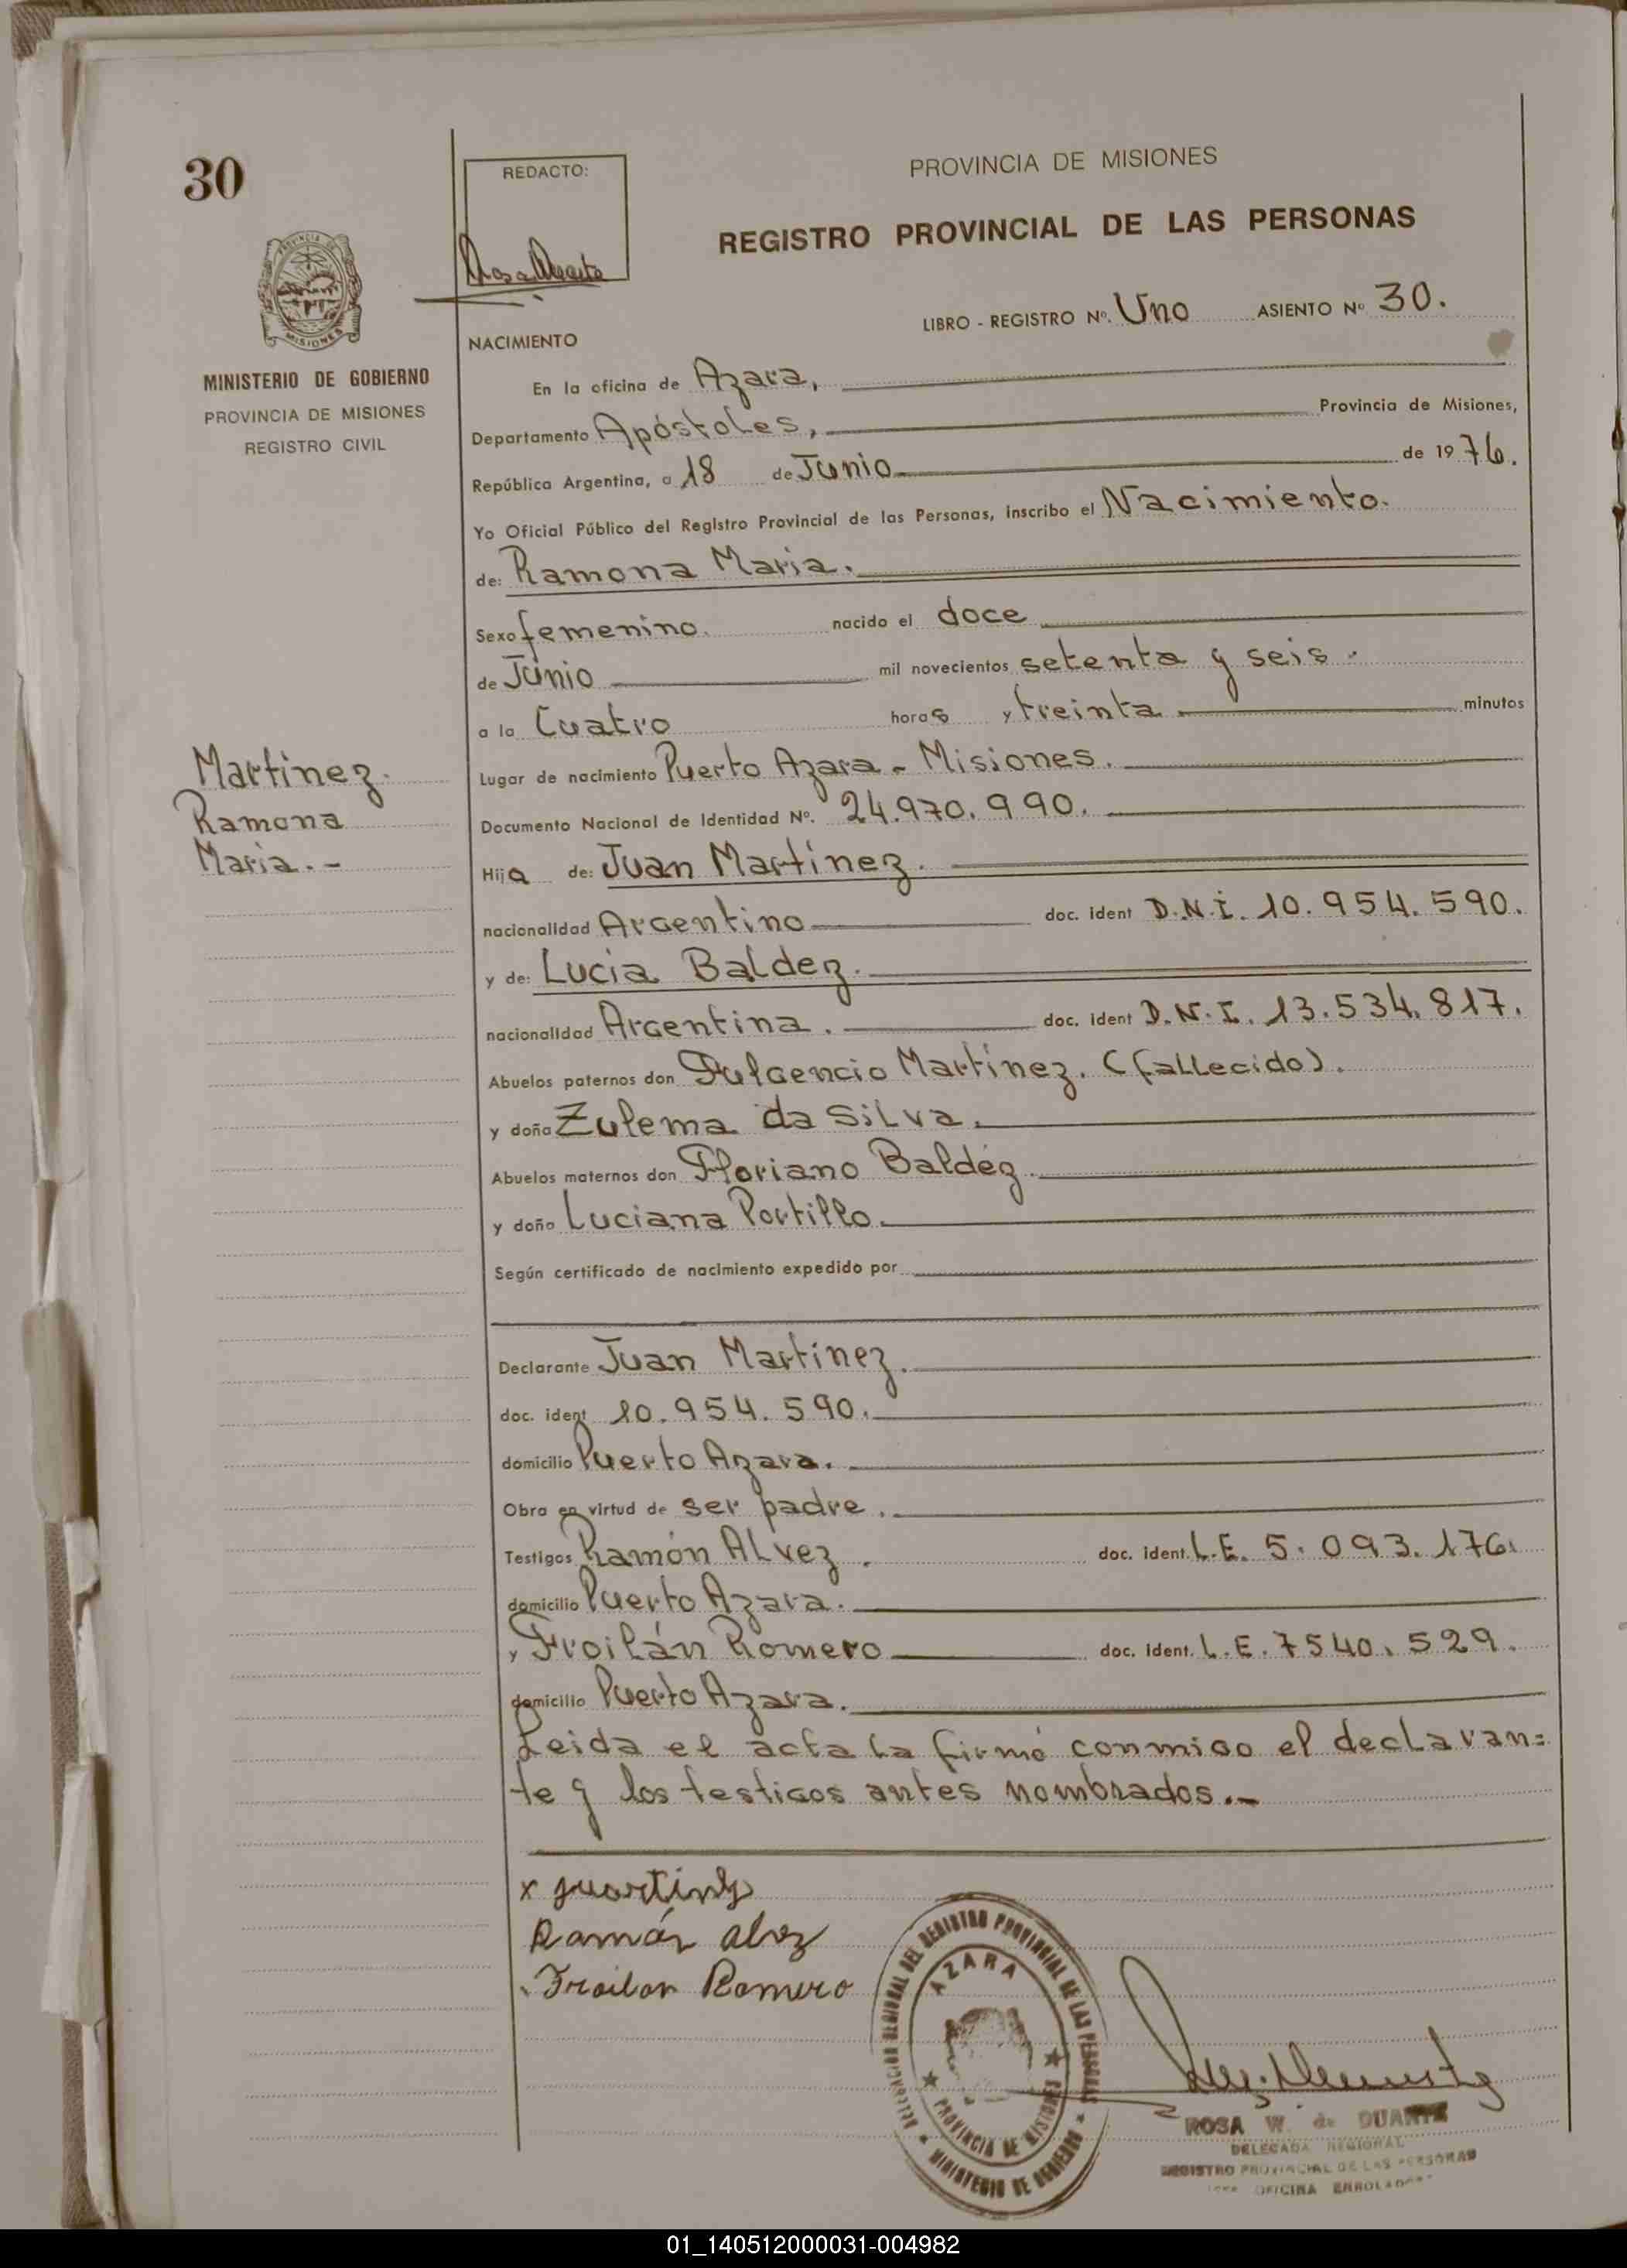 30
REDACTO:
Rosa Duarte
PROVINCIA DE MISIONES
REGISTRO PROVINCIAL DE LAS PERSONAS
LIBRO - REGISTRO Nº. Uno ASIENTO Nº 30.
PROVINCIA DE
MISIONES
MINISTERIO DE GOBIERNO
PROVINCIA DE MISIONES
REGISTRO CIVIL
NACIMIENTO
En la oficina de Azara,
Departamento Apóstoles, Provincia de Misiones,
República Argentina, a 18 de Junio de 1976.
Yo Oficial Público del Registro Provincial de las Personas, inscribo el Nacimiento.
de: Ramona Maria.
Sexo femenino. nacido el doce
de Junio mil novecientos setenta y seis.
a la Cuatro horas y treinta minutos
Martinez.
Ramona
Maria.-
Lugar de nacimiento Puerto Azara - Misiones.
Documento Nacional de Identidad Nº. 24.970.990.
Hija de: Juan Martínez.
nacionalidad Argentino doc. ident D.N.I. 10.954.590.
y de: Lucia Baldez.
nacionalidad Argentina. doc. ident D.N.I. 13.534.817.
Abuelos paternos don Fulgencio Martínez. (fallecido).
y doña Zulema da Silva.
Abuelos maternos don Floriano Baldéz.
y doña Luciana Portillo.
Según certificado de nacimiento expedido por
Declarante Juan Martínez.
doc. ident 10.954.590.
domicilio Puerto Azara.
Obra en virtud de ser padre.
Testigos Ramón Alvez. doc. ident. L.E. 5.093.176.
domicilio Puerto Azara.
y Froilán Romero doc. ident. L.E. 7540.529.
domicilio Puerto Azara.
Leida el acta la firmó conmigo el declaran=
te y los testigos antes nombrados.-
x
Ramón alvez
Froilan Romero
DELEGACION REGIONAL DEL REGISTRO PROVINCIAL DE LAS PERSONAS
AZARA
PROVINCIA DE MISIONES
MINISTERIO DE GOBIERNO
ROSA W. de DUARTE
DELEGADA REGIONAL
REGISTRO PROVINCIAL DE LAS PERSONAS
OFICINA ENROLADORA
01_140512000031-004982